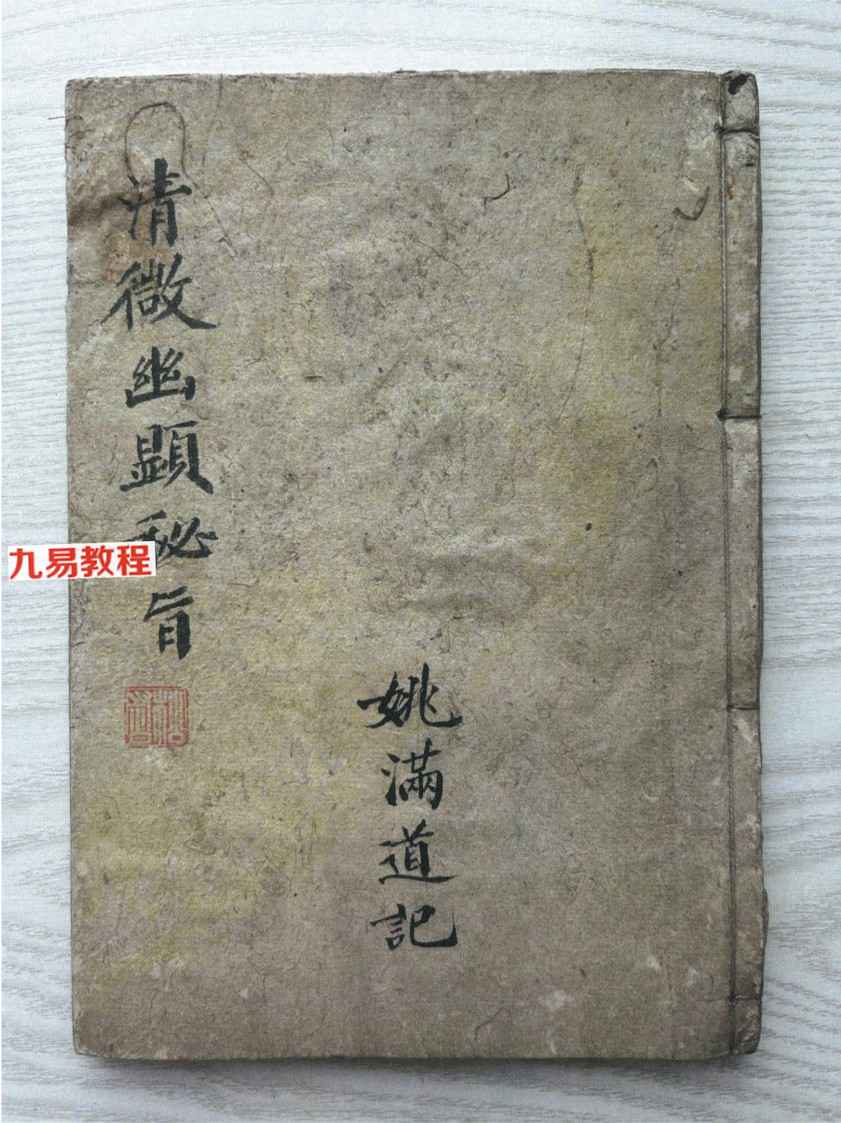 清微幽顯秘旨
姚滿道記
九易教程